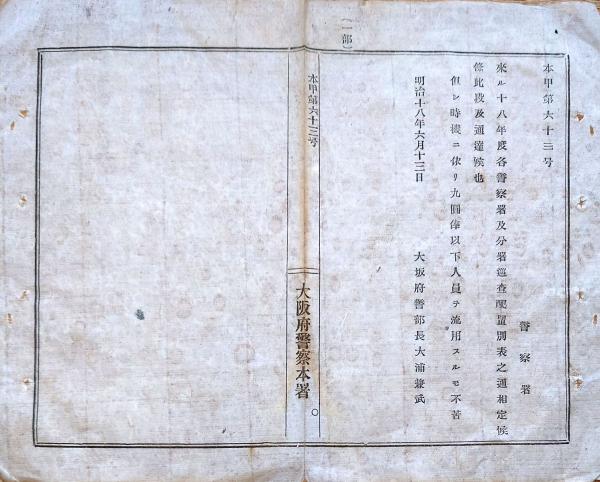 本甲第六十三号
警察署
來ル十八年度各警察署及分署巡査配置別表之通相定候
條此段及通達候也
但シ時機ニ依リ九圓俸以下人員ヲ流用スルモ不苦
明治十八年六月十三日
大坂府警部長大浦兼武
(一部)
本甲第六十三号
大阪府警察本署